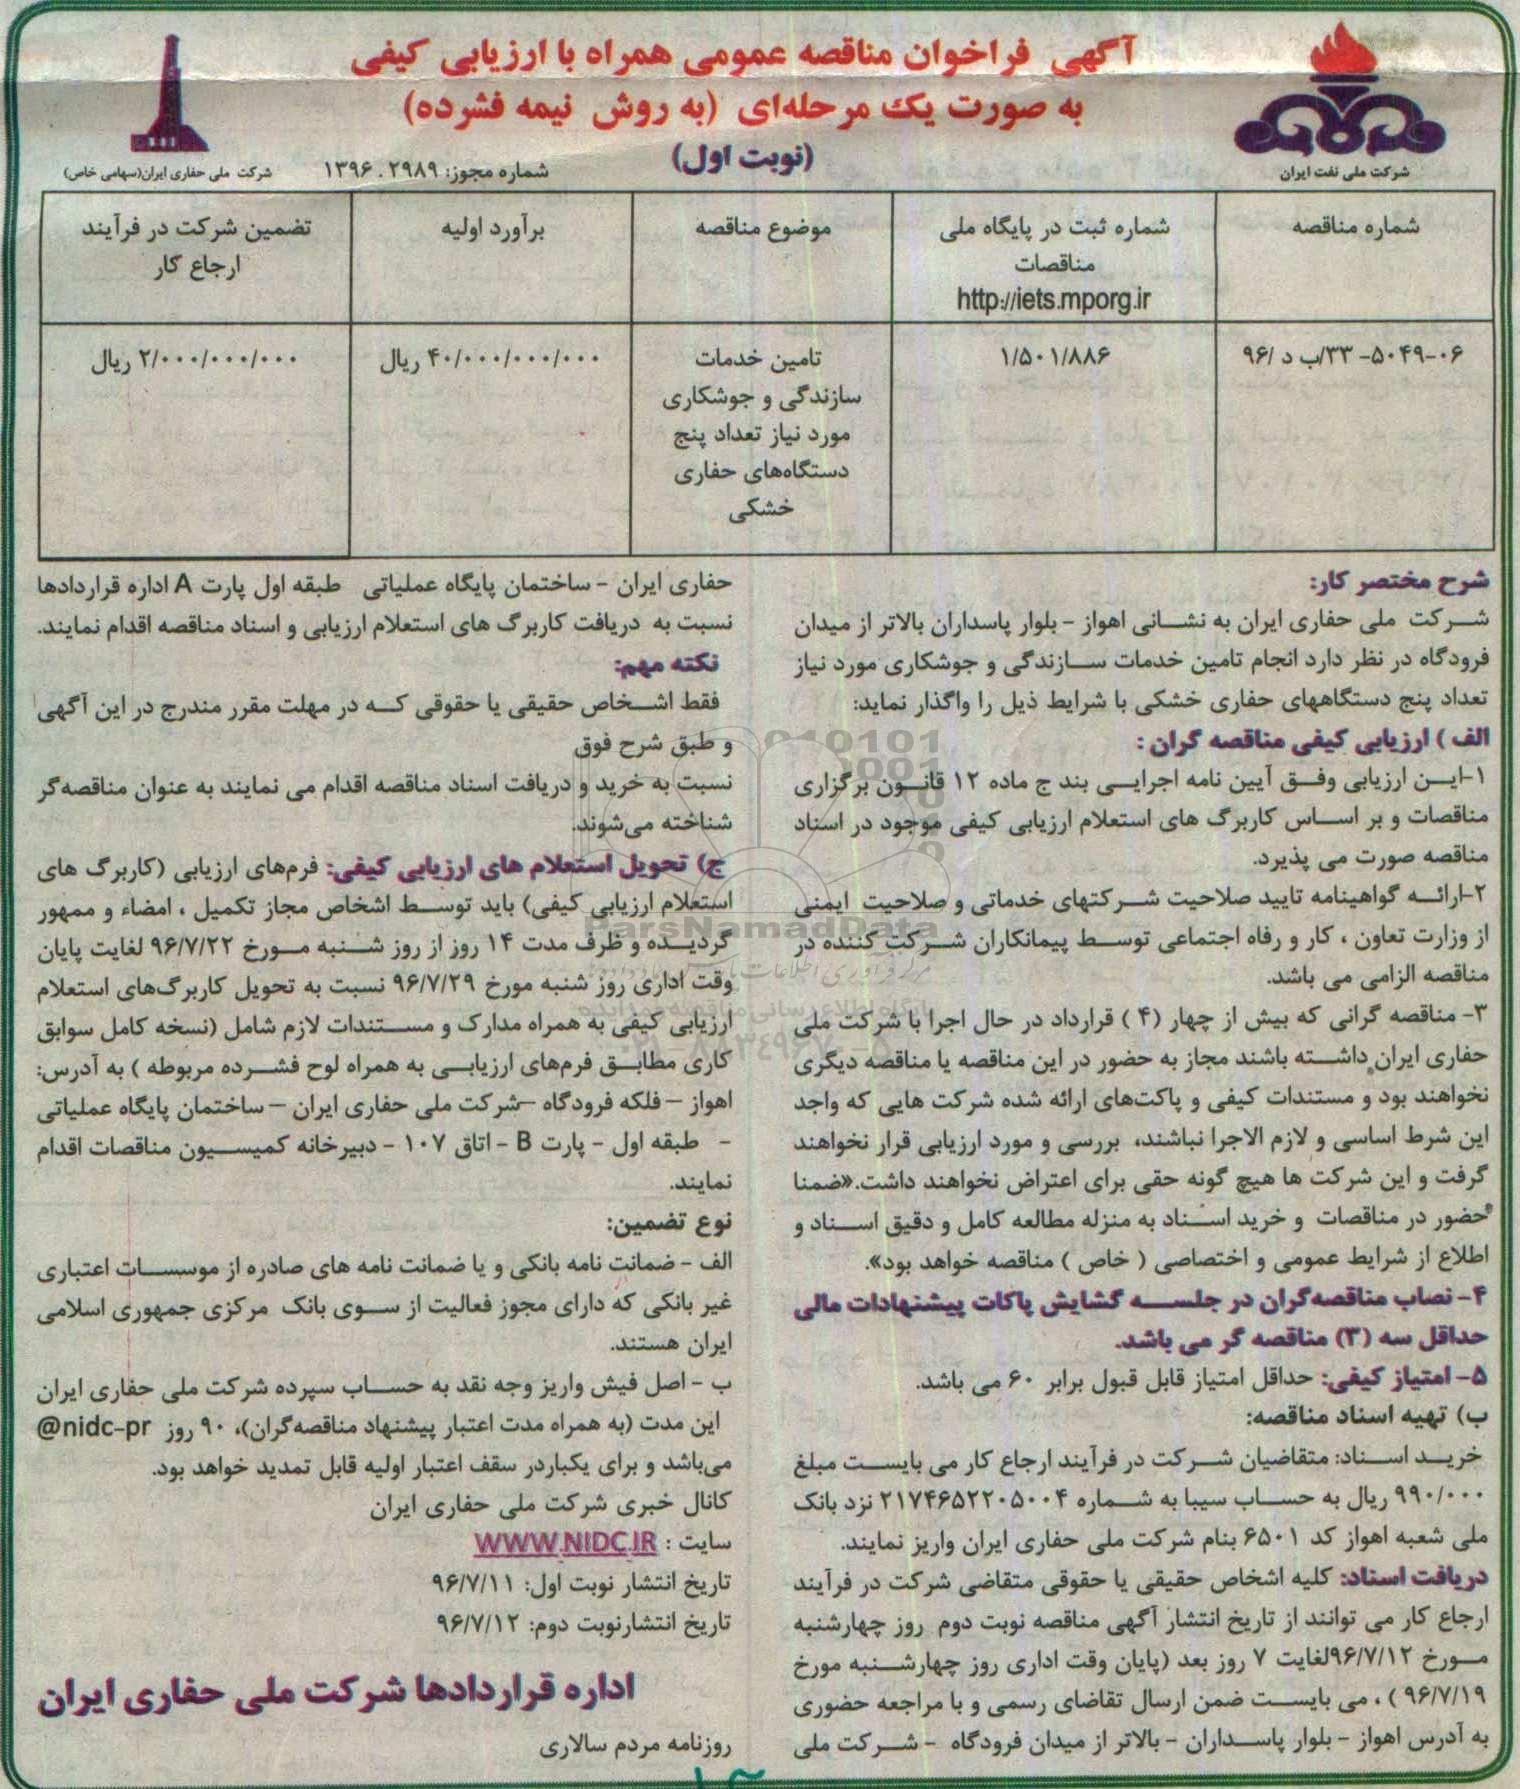 آگهی فراخوان مناقصه عمومی همراه با ارزیابی کیفی
به صورت یک مرحله‌ای (به روش نیمه فشرده)
(نوبت اول)
شرکت ملی نفت ایران
شماره مجوز: ۱۳۹۶.۲۹۸۹
شرکت ملی حفاری ایران(سهامی خاص)
شماره مناقصه
شماره ثبت در پایگاه ملی
مناقصات
http://iets.mporg.ir
موضوع مناقصه
برآورد اولیه
تضمین شرکت در فرآیند
ارجاع کار
۰۶-۵۰۴۹- ۳۳/ب د /۹۶
۱/۵۰۱/۸۸۶
تامین خدمات
سازندگی و جوشکاری
مورد نیاز تعداد پنج
دستگاه‌های حفاری
خشکی
۴۰/۰۰۰/۰۰۰/۰۰۰ ریال
۲/۰۰۰/۰۰۰/۰۰۰ ریال
شرح مختصر کار:
شرکت ملی حفاری ایران به نشانی اهواز - بلوار پاسداران بالاتر از میدان
فرودگاه در نظر دارد انجام تامین خدمات سازندگی و جوشکاری مورد نیاز
تعداد پنج دستگاههای حفاری خشکی با شرایط ذیل را واگذار نماید:
الف ) ارزیابی کیفی مناقصه گران :
۱-این ارزیابی وفق آیین نامه اجرایی بند ج ماده ۱۲ قانون برگزاری
مناقصات و بر اساس کاربرگ های استعلام ارزیابی کیفی موجود در اسناد
مناقصه صورت می پذیرد.
۲-ارائه گواهینامه تایید صلاحیت شرکتهای خدماتی و صلاحیت ایمنی
از وزارت تعاون ، کار و رفاه اجتماعی توسط پیمانکاران شرکت کننده در
مناقصه الزامی می باشد.
۳- مناقصه گرانی که بیش از چهار (۴ ) قرارداد در حال اجرا با شرکت ملی
حفاری ایران داشته باشند مجاز به حضور در این مناقصه یا مناقصه دیگری
نخواهند بود و مستندات کیفی و پاکت‌های ارائه شده شرکت هایی که واجد
این شرط اساسی و لازم الاجرا نباشند، بررسی و مورد ارزیابی قرار نخواهند
گرفت و این شرکت ها هیچ گونه حقی برای اعتراض نخواهند داشت.«ضمنا
حضور در مناقصات و خرید اسناد به منزله مطالعه کامل و دقیق اسناد و
اطلاع از شرایط عمومی و اختصاصی ( خاص ) مناقصه خواهد بود».
۴- نصاب مناقصه‌گران در جلسه گشایش پاکات پیشنهادات مالی
حداقل سه (۳) مناقصه گر می باشد.
۵- امتیاز کیفی: حداقل امتیاز قابل قبول برابر ۶۰ می باشد.
ب) تهیه اسناد مناقصه:
خرید اسناد: متقاضیان شرکت در فرآیند ارجاع کار می بایست مبلغ
۹۹۰/۰۰۰ ریال به حساب سیبا به شماره ۲۱۷۴۶۵۲۲۰۵۰۰۴ نزد بانک
ملی شعبه اهواز کد ۶۵۰۱ بنام شرکت ملی حفاری ایران واریز نمایند.
دریافت اسناد: کلیه اشخاص حقیقی یا حقوقی متقاضی شرکت در فرآیند
ارجاع کار می توانند از تاریخ انتشار آگهی مناقصه نوبت دوم روز چهارشنبه
مورخ ۹۶/۷/۱۲لغایت ۷ روز بعد (پایان وقت اداری روز چهارشنبه مورخ
۹۶/۷/۱۹ ) ، می بایست ضمن ارسال تقاضای رسمی و با مراجعه حضوری
به آدرس اهواز - بلوار پاسداران - بالاتر از میدان فرودگاه - شرکت ملی
حفاری ایران - ساختمان پایگاه عملیاتی طبقه اول پارت A اداره قراردادها
نسبت به دریافت کاربرگ های استعلام ارزیابی و اسناد مناقصه اقدام نمایند.
نکته مهم:
فقط اشخاص حقیقی یا حقوقی که در مهلت مقرر مندرج در این آگهی
و طبق شرح فوق
نسبت به خرید و دریافت اسناد مناقصه اقدام می نمایند به عنوان مناقصه‌گر
شناخته می‌شوند.
ج) تحویل استعلام های ارزیابی کیفی: فرم‌های ارزیابی (کاربرگ های
استعلام ارزیابی کیفی) باید توسط اشخاص مجاز تکمیل ، امضاء و ممهور
گردیده و ظرف مدت ۱۴ روز از روز شنبه مورخ ۹۶/۷/۲۲ لغایت پایان
وقت اداری روز شنبه مورخ ۹۶/۷/۲۹ نسبت به تحویل کاربرگ‌های استعلام
ارزیابی کیفی به همراه مدارک و مستندات لازم شامل (نسخه کامل سوابق
کاری مطابق فرم‌های ارزیابی به همراه لوح فشرده مربوطه ) به آدرس:
اهواز – فلکه فرودگاه –شرکت ملی حفاری ایران – ساختمان پایگاه عملیاتی
- طبقه اول - پارت B - اتاق ۱۰۷ - دبیرخانه کمیسیون مناقصات اقدام
نمایند.
نوع تضمین:
الف - ضمانت نامه بانکی و یا ضمانت نامه های صادره از موسسات اعتباری
غیر بانکی که دارای مجوز فعالیت از سوی بانک مرکزی جمهوری اسلامی
ایران هستند.
ب - اصل فیش واریز وجه نقد به حساب سپرده شرکت ملی حفاری ایران
این مدت (به همراه مدت اعتبار پیشنهاد مناقصه‌گران)، ۹۰ روز @nidc-pr
می‌باشد و برای یکباردر سقف اعتبار اولیه قابل تمدید خواهد بود.
کانال خبری شرکت ملی حفاری ایران
سایت : WWW.NIDC.IR
تاریخ انتشار نوبت اول: ۹۶/۷/۱۱
تاریخ انتشارنوبت دوم: ۹۶/۷/۱۲
اداره قراردادها شرکت ملی حفاری ایران
روزنامه مردم سالاری
ParsNamadData